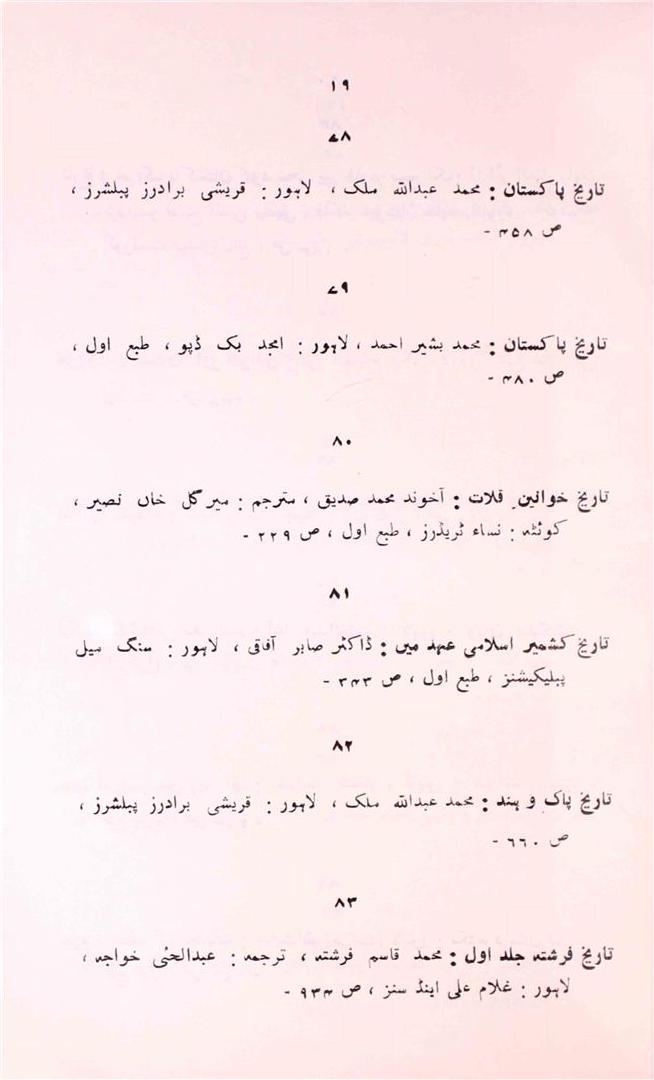 ۱۹
۷۸
تاریخ پاکستان : محمد عبداللہ ملک ، لاہور : قریشی برادرز پبلشرز ،
ص ۴۵۸ -
۷۹
تاریخ پاکستان : محمد بشیر احمد ، لاہور : امجد بک ڈپو ، طبع اول ،
ص ۴۸۰ -
۸۰
تاریخ خوانینِ قلات : آخوند محمد صدیق ، مترجم : میر گل خاں نصیر ،
کوئٹہ : نساء ٹریڈرز ، طبع اول ، ص ۲۲۹ -
۸۱
تاریخ کشمیر اسلامی عہد میں : ڈاکٹر صابر آفاقی ، لاہور : سنگ میل
پبلیکیشنز ، طبع اول ، ص ۳۴۳ -
۸۲
تاریخ پاک و ہند : محمد عبداللہ ملک ، لاہور : قریشی برادرز پبلشرز ،
ص ۶۶۰ -
۸۳
تاریخ فرشتہ جلد اول : محمد قاسم فرشتہ ، ترجمہ : عبدالحئی خواجہ ،
لاہور : غلام علی اینڈ سنز ، ص ۹۳۴ -